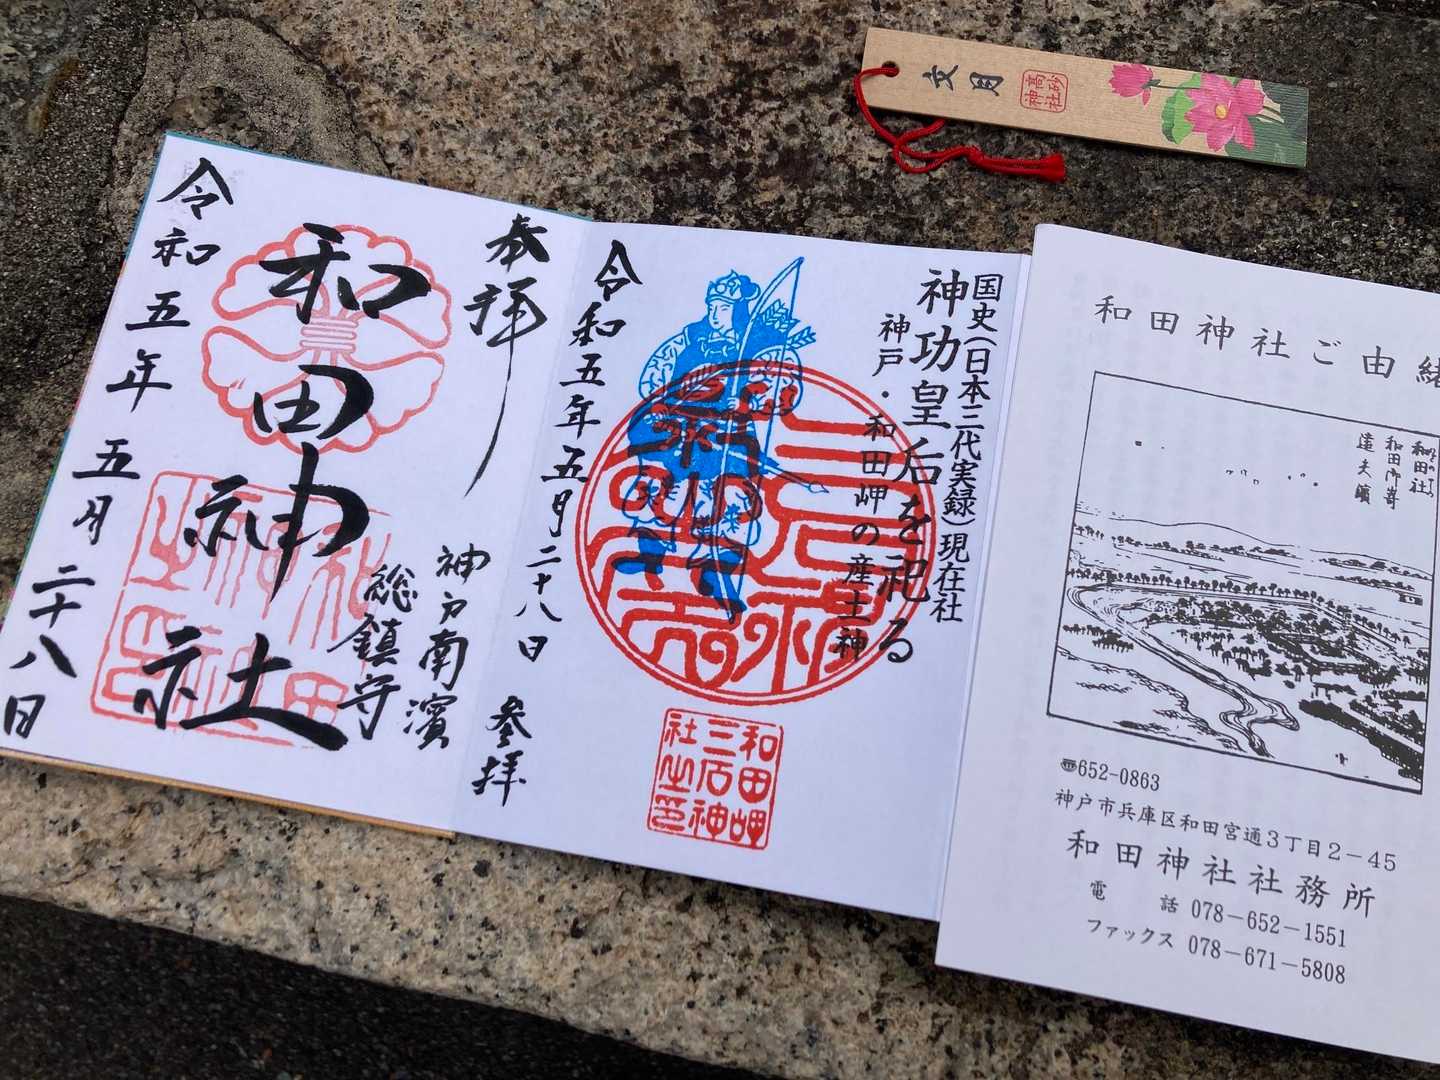 文月
高砂神社
奉拝
和田神社
神戸南濱
総鎮守
令和五年 五月 二十八日
国史(日本三代実録)現在社
神功皇后を祀る
神戸・和田岬の産土神
和田岬
三石神
社之印
令和五年五月二十八日 参拝
和田神社ご由緒
和田社
和田御嵜
遠矢濱
〠652-0863
神戸市兵庫区和田宮通3丁目2-45
和田神社社務所
電 話 078-652-1551
ファックス 078-671-5808